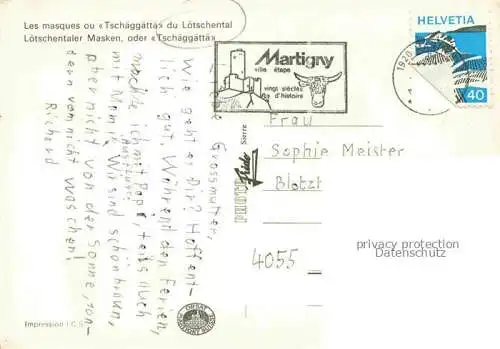 Les masques ou «Tschäggättä» du Lötschental
Lötschentaler Masken, oder «Tschäggättä»
HELVETIA
40
1920
Martigny
ville étape
vingt siècles
d'histoire
Grossmutter,
Wie geht es Dir? Hoffent-
lich gut. Während den Ferien,
mache ich mit Papi, teils auch
mit Mami Ausflüge.
Wir sind schön braun,
aber nicht von der Sonne, son-
dern vom nicht waschen!
Richard
Frau
Sophie Meister
Blotzt
4055
Sierre
PHOTO
privacy protection
Datenschutz
Impression I.C.S.